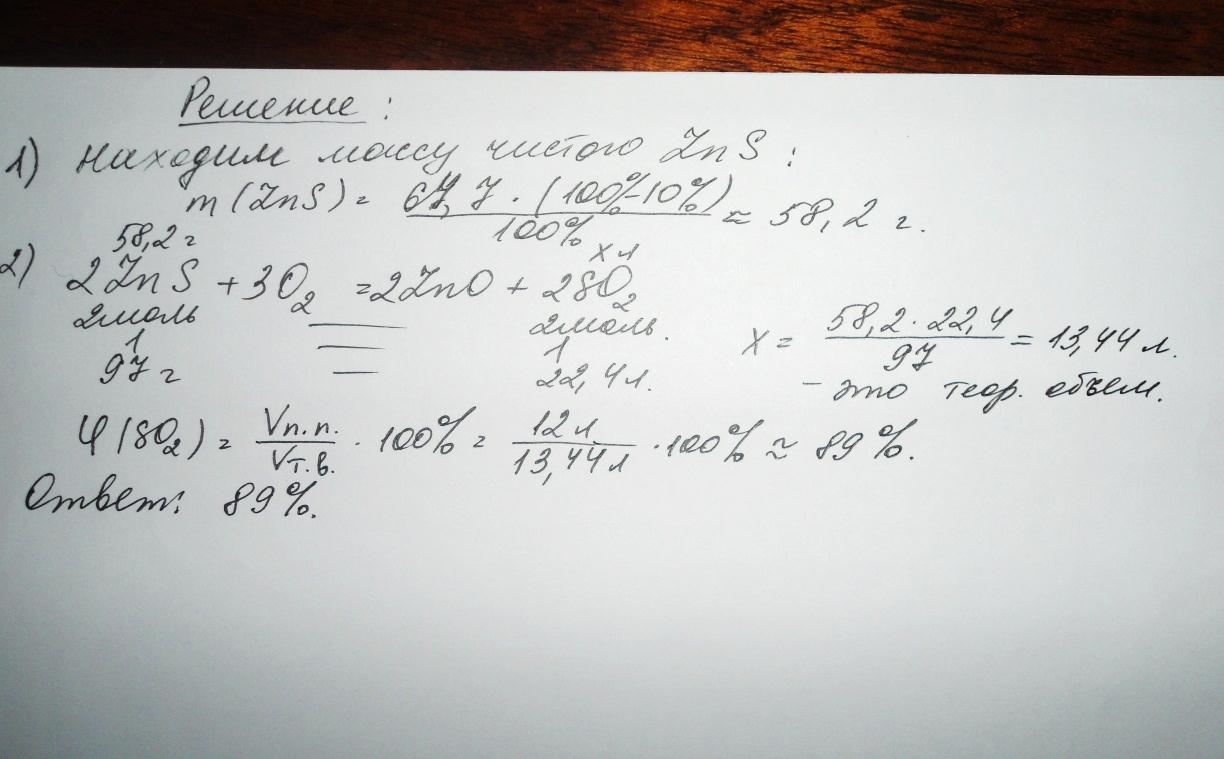 Решение:
1) Находим массу чистого ZnS:
m(ZnS) = 64,7 · (100%-10%) / 100% ≈ 58,2 г.
58,2 г х л
2) 2ZnS + 3O2 = 2ZnO + 2SO2
2моль 2моль.
1 1
97 г 22,4л.
X = 58,2 · 22,4 / 97 = 13,44 л.
- это теор. объем.
φ(SO2) = Vп.п. / Vт.в. · 100% = 12 л / 13,44 л · 100% ≈ 89%.
Ответ: 89%.